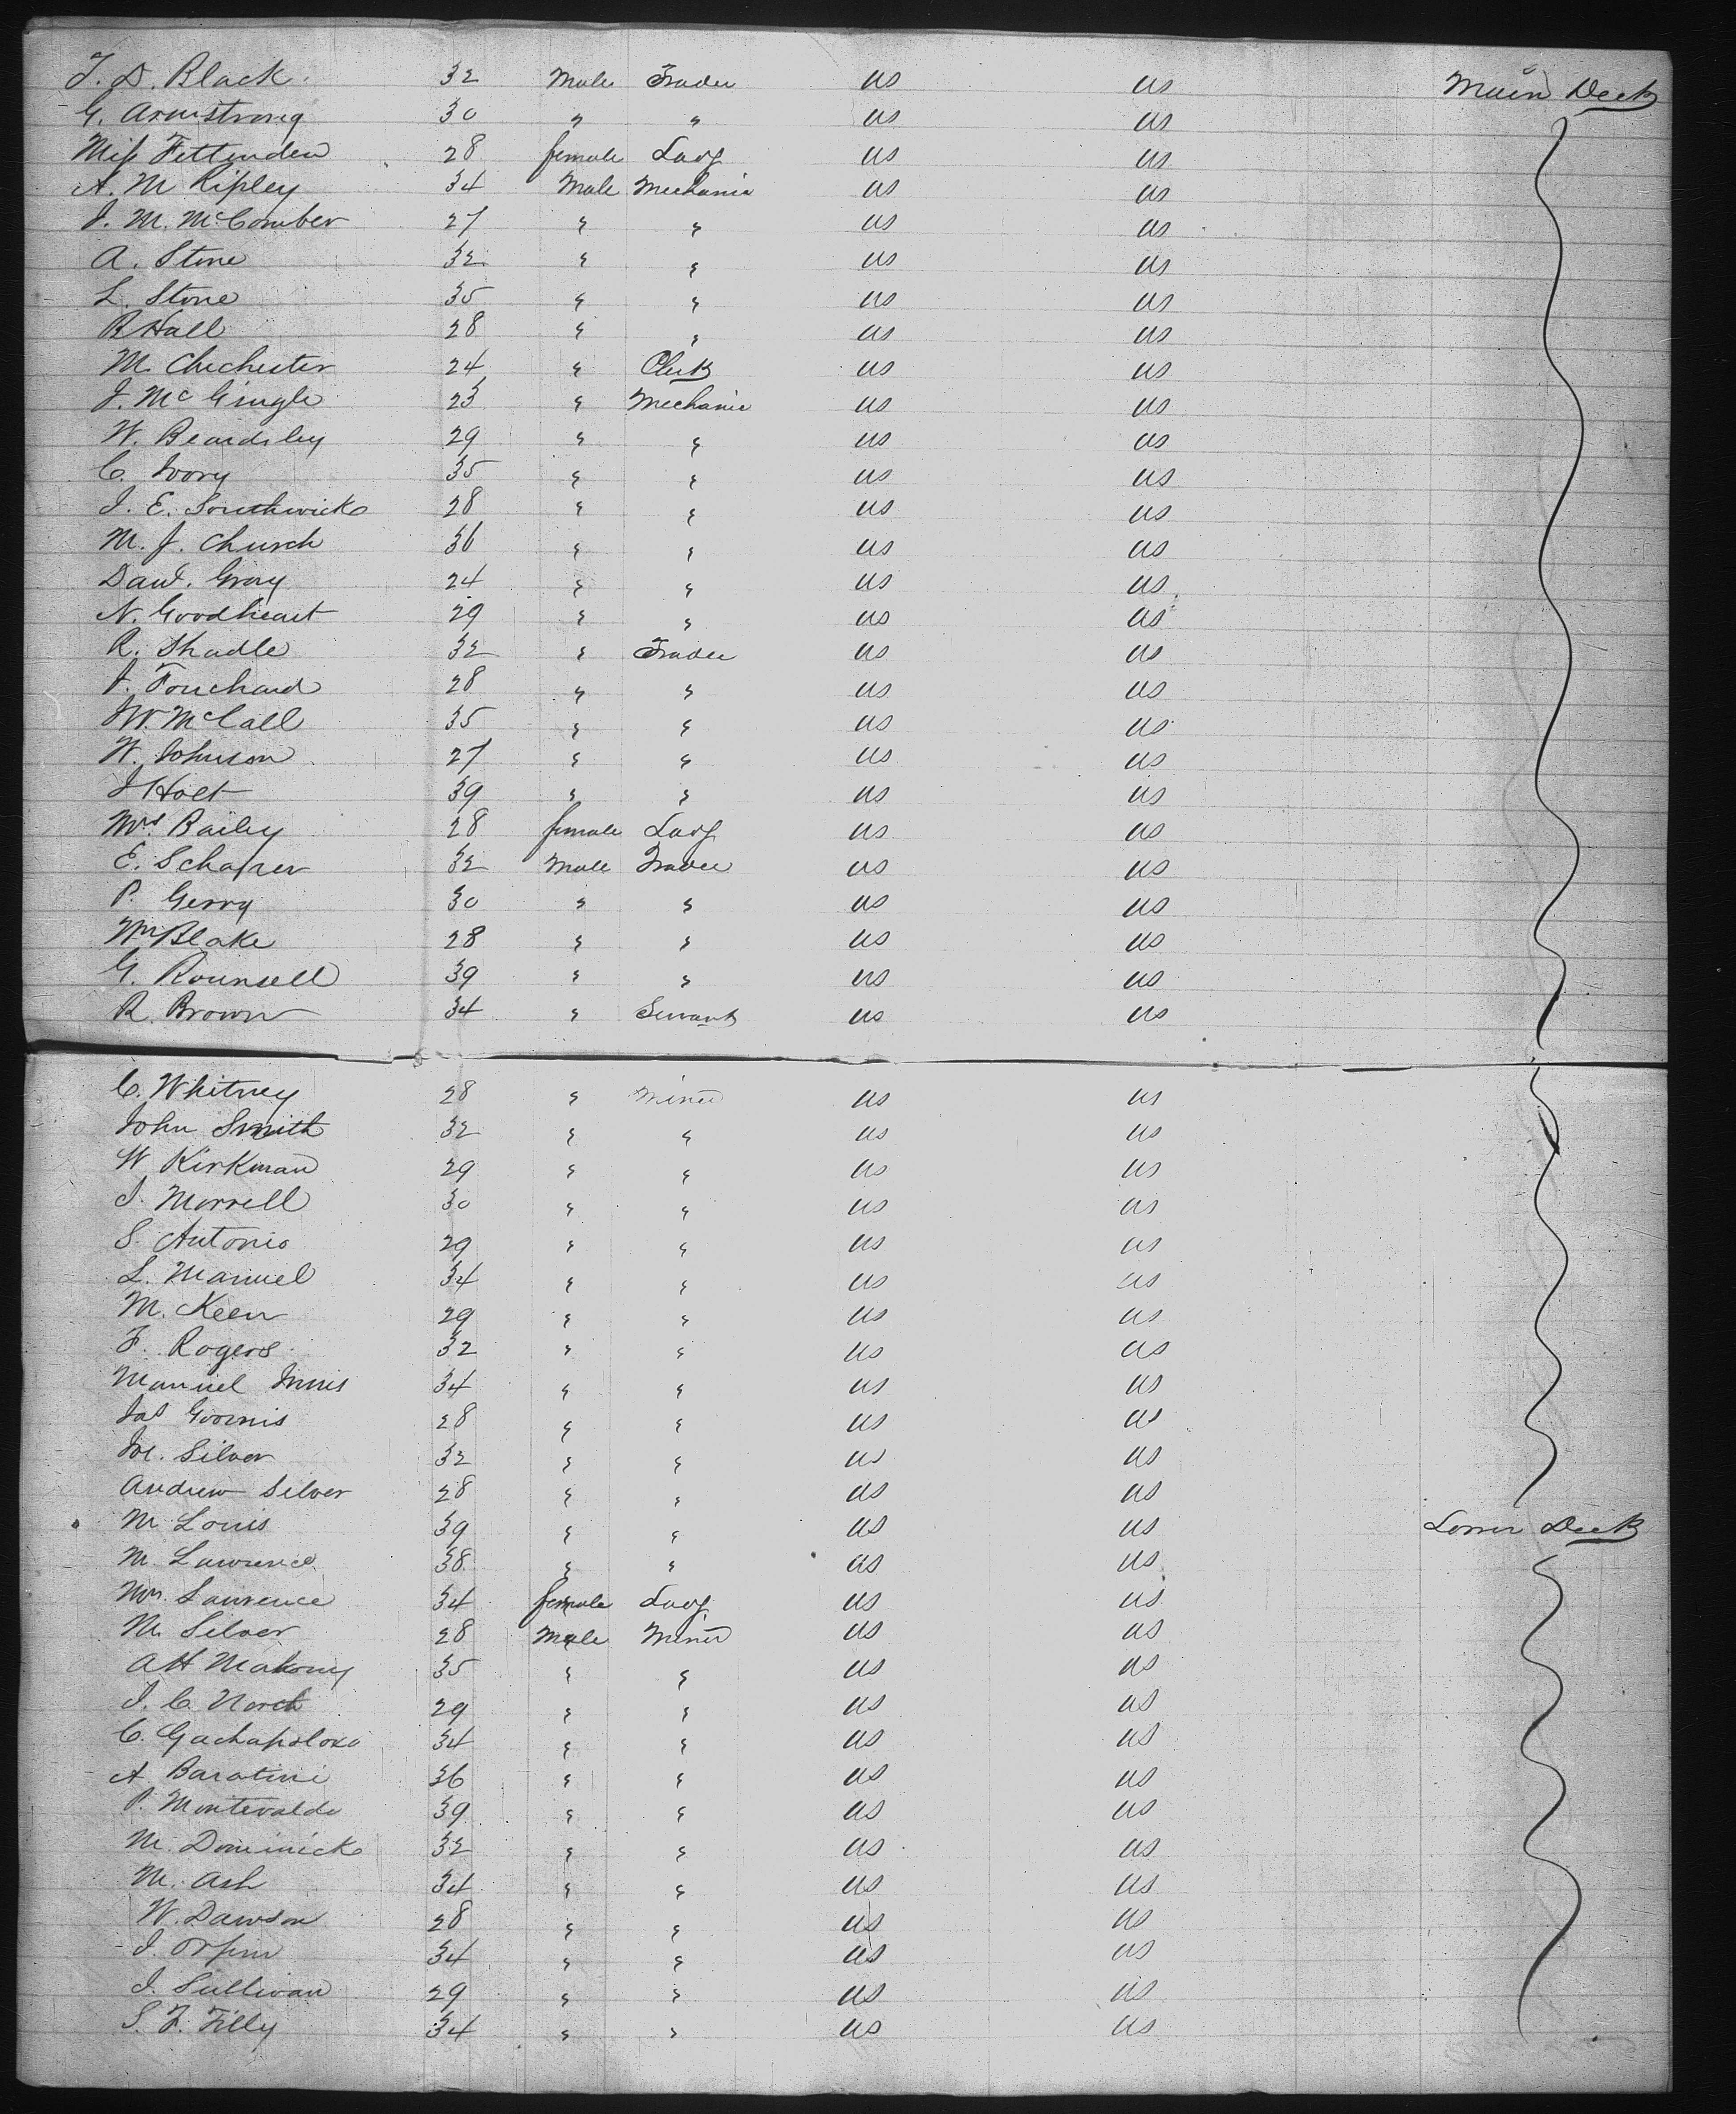 T. D. Black 32 Male Trader US US Main Deck
G. Armstrong 30 " " US US
Miss Fettenden 28 female Lady US US
A. M Ripley 34 Male Mechanic US US
J. M. McComber 27 " " US US
A. Stone 32 " " US US
L. Stone 35 " " US US
R Hall 28 " " US US
M. Chichester 24 " Clerk US US
J. McGingle 23 " Mechanic US US
W. Beardsley 29 " " US US
C. Ivory 35 " " US US
J. E. Southwick 28 " " US US
M. J. Church 36 " " US US
Danl. Gray 24 " " US US
N. Goodheart 29 " " US US
R. Shadle 32 " Trader US US
J. Touchard 28 " " US US
W. McCall 35 " " US US
W. Johnson 27 " " US US
J Holt 39 " " US US
Mrs Bailey 28 female Lady US US
E. Schafrer 32 Male Trader US US
P. Gerry 30 " " US US
Wm Blake 28 " " US US
G. Rounsell 39 " " US US
R. Brown 34 " Servant US US
C. Whitney 28 " Miner US US
John Smith 32 " " US US
W Kirkman 29 " " US US
J. Morrell 30 " " US US
S. Antonio 29 " " US US
L. Manuel 34 " " US US
M. Keen 29 " " US US
F. Rogers 32 " " US US
Manuel Innis 34 " " US US
Jas Goornis 28 " " US US
M. Silver 32 " " US US
Andrew Silver 28 " " US US
M Louis 39 " " US US Lower Deck
M. Lawrence 38 " " US US
Mrs. Lawrence 34 female Lady US US
M. Silver 28 Male Miner US US
A H Mahony 35 " " US US
J. C. North 29 " " US US
C. Gachapoloxo 34 " " US US
A Baratini 36 " " US US
P. Montevaldo 39 " " US US
M. Dominick 32 " " US US
M. Ash 34 " " US US
W. Dawson 28 " " US US
J. Orpin 34 " " US US
J. Sullivan 29 " " US US
S. F. Tilly 34 " " US US